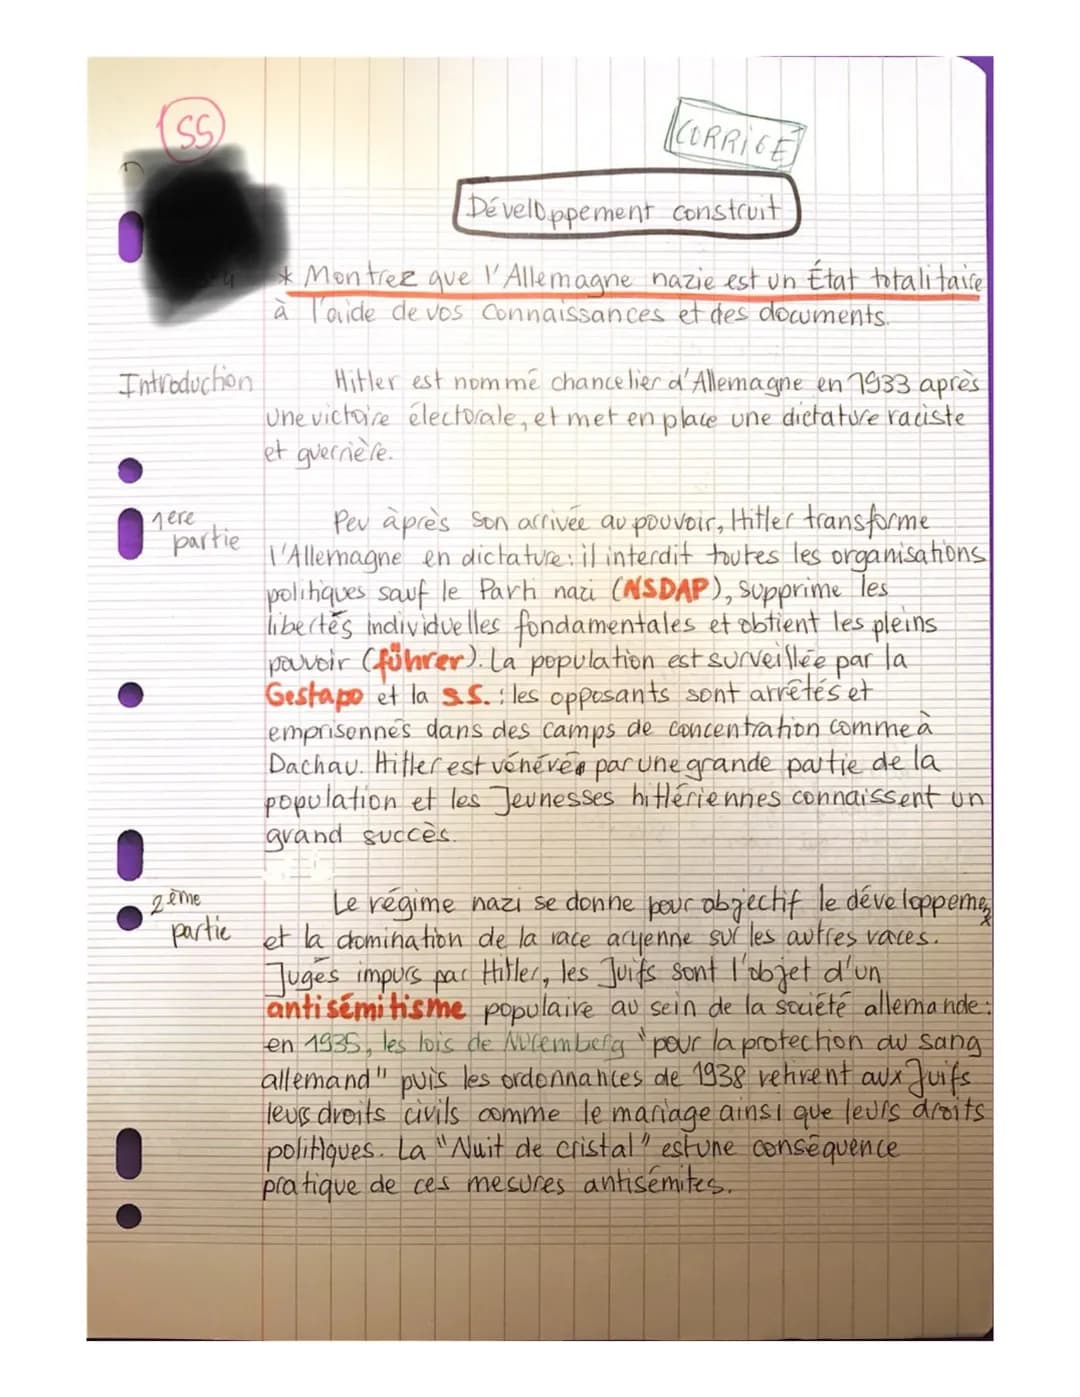 SS
CORRIGÉ
Développement construit
* Montrez que l'Allemagne nazie est un État totalitaire
à l'aide de vos connaissances et des documents.
Introduction
Hitler est nommé chancelier d'Allemagne en 1933 après
une victoire électorale, et met en place une dictature raciste
et guerrière.
1ère
partie
Peu àprès son arrivée au pouvoir, Hitler transforme
l'Allemagne en dictature : il interdit toutes les organisations
politiques sauf le Parti nazi (NSDAP), supprime les
libertés individuelles fondamentales et obtient les pleins
pouvoir (führer). La population est surveillée par la
Gestapo et la S.S. : les opposants sont arrêtés et
emprisonnés dans des camps de concentration comme à
Dachau. Hitler est vénéré par une grande partie de la
population et les Jeunesses hitlériennes connaissent un
grand succès.
2ème
partie
Le régime nazi se donne pour objectif le développement
et la domination de la race aryenne sur les autres races.
Jugés impurs par Hitler, les Juifs sont l'objet d'un
antisémitisme populaire au sein de la société allemande :
en 1935, les lois de Nuremberg "pour la protection du sang
allemand" puis les ordonnances de 1938 retirent aux Juifs
leurs droits civils comme le mariage ainsi que leurs droits
politiques. La "Nuit de cristal" est une conséquence
pratique de ces mesures antisémites.